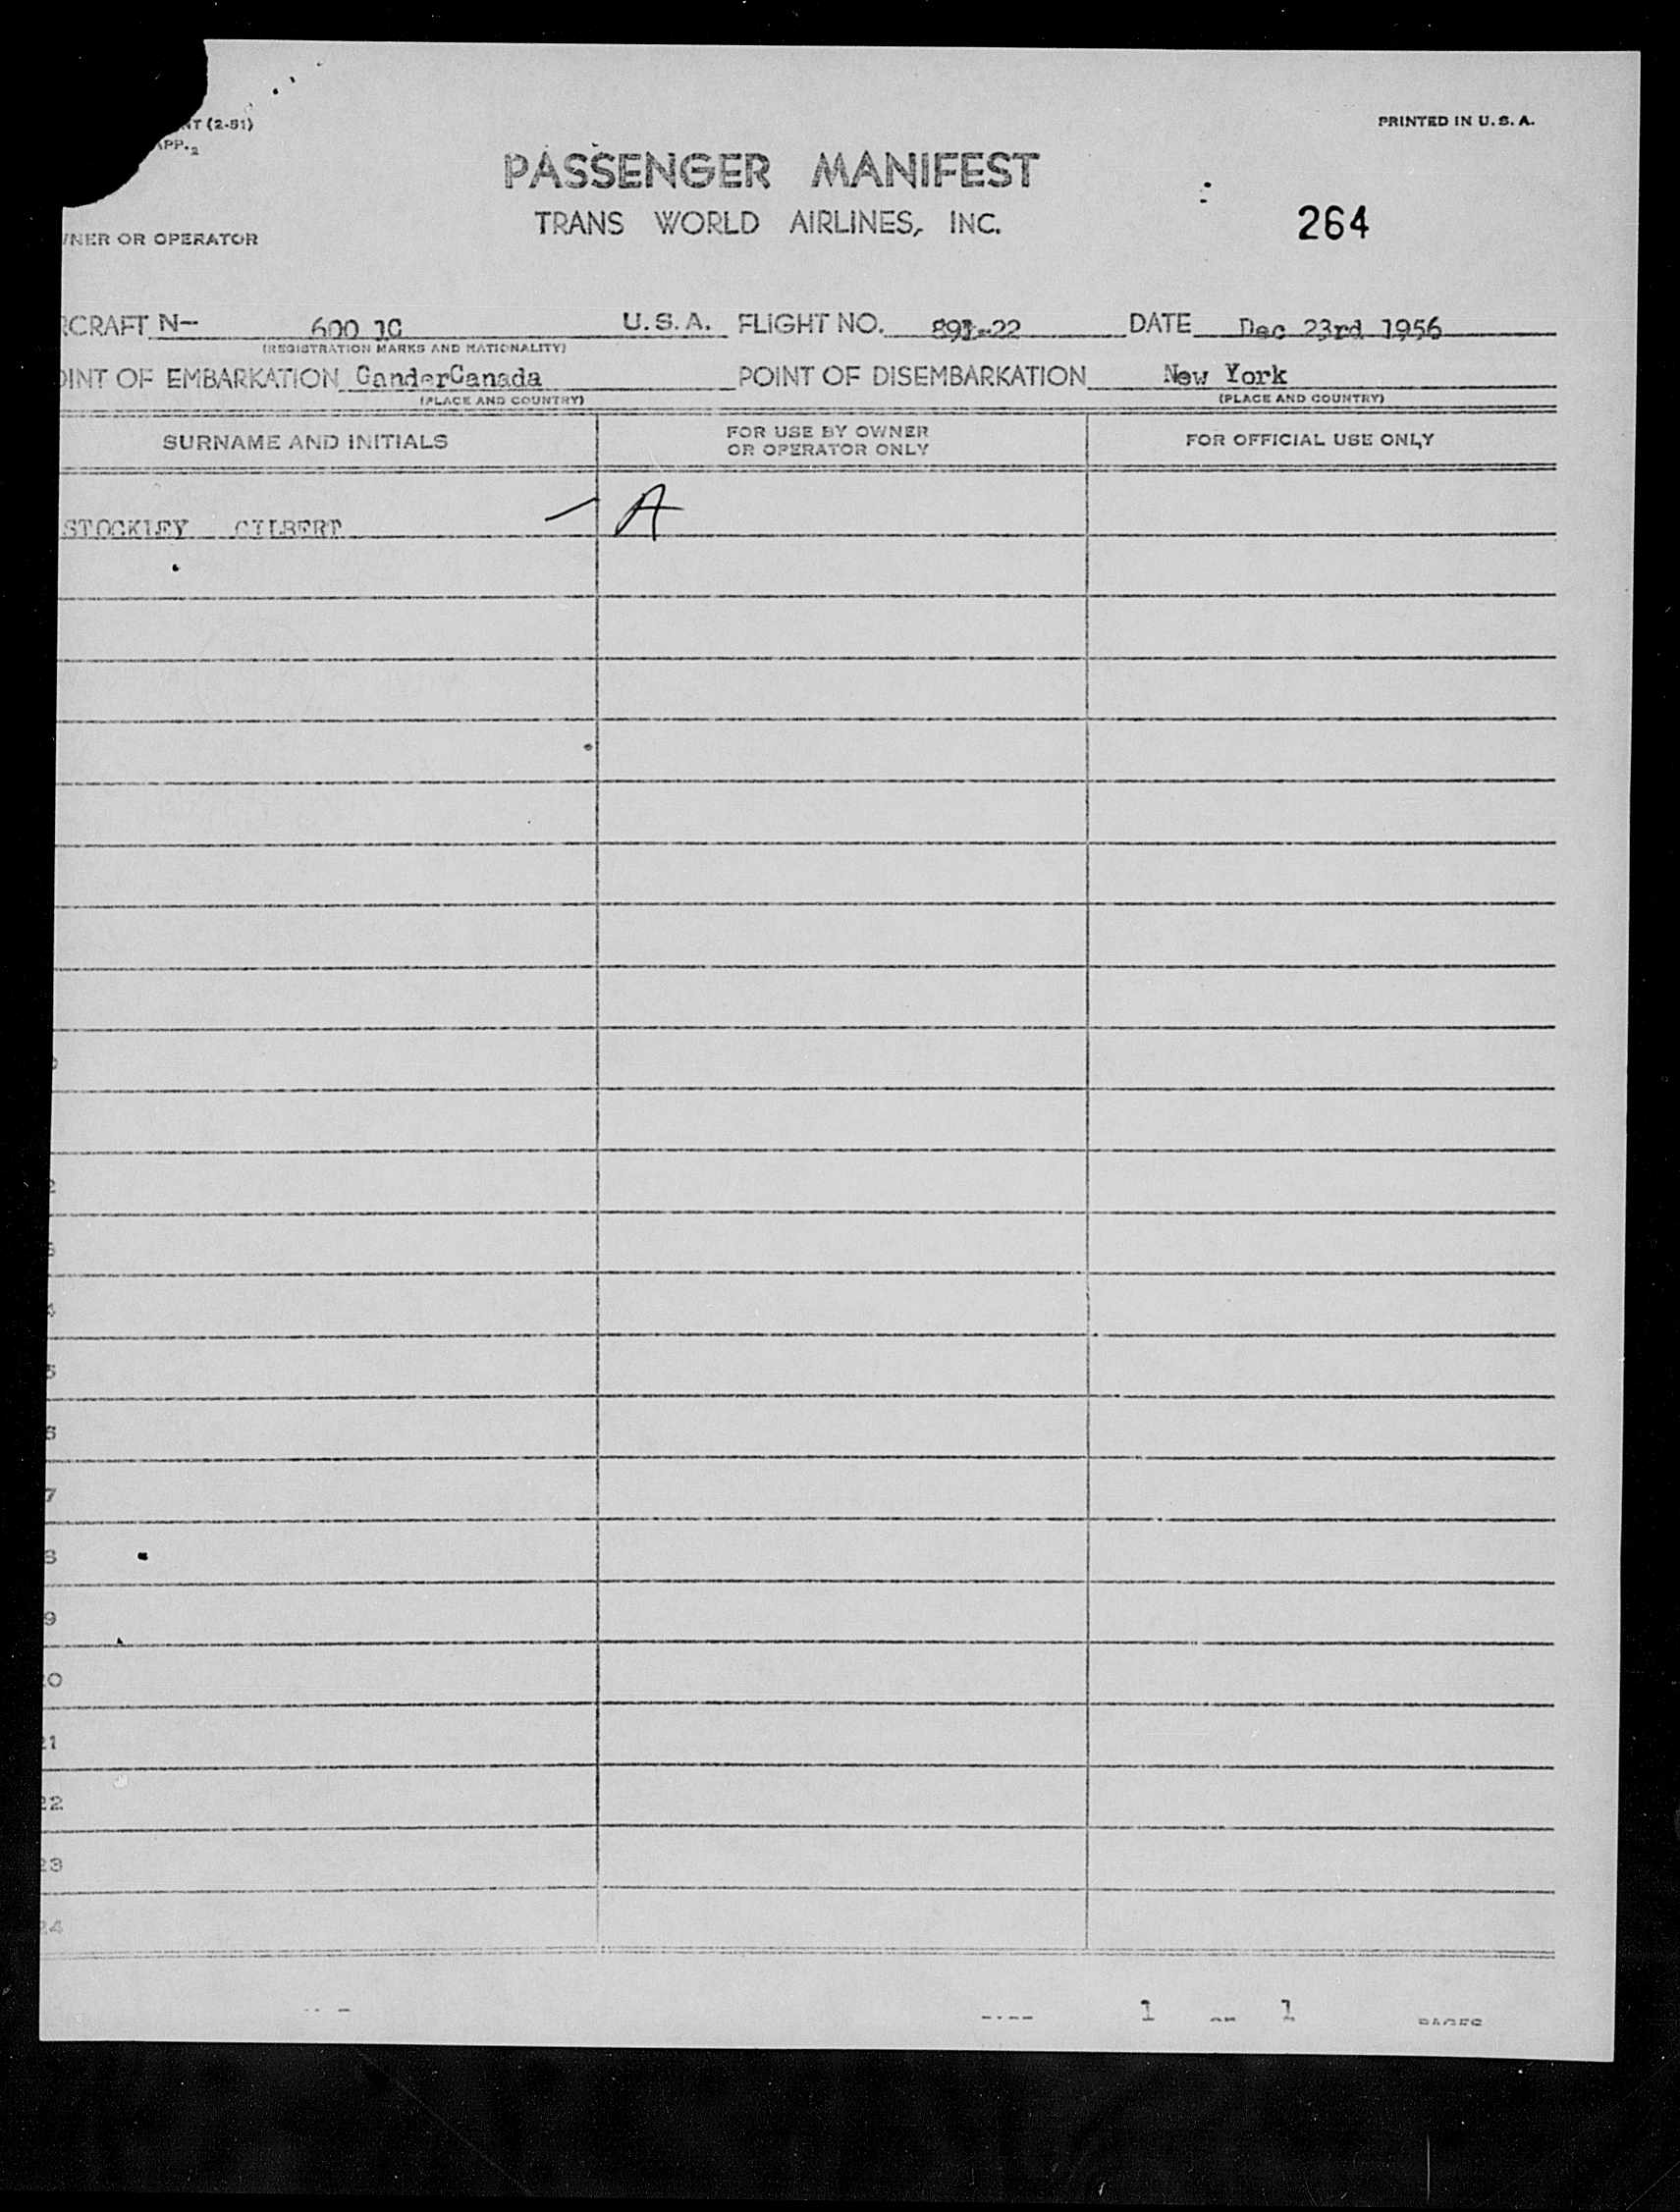 NT (2-51)
PRINTED IN U. S. A.
APP. 2
PASSENGER MANIFEST
TRANS WORLD AIRLINES, INC.
264
NER OR OPERATOR
RCRAFT N- 600 1C U. S. A. FLIGHT NO. DATE Dec 23rd 1956
(REGISTRATION MARKS AND NATIONALITY)
OINT OF EMBARKATION GanderCanada POINT OF DISEMBARKATION New York
(PLACE AND COUNTRY) (PLACE AND COUNTRY)
SURNAME AND INITIALS
FOR USE BY OWNER
OR OPERATOR ONLY
FOR OFFICIAL USE ONLY
STOCKLEY GILBERT A
5
6
7
8
9
20
21
22
23
24
1 1 PAGES